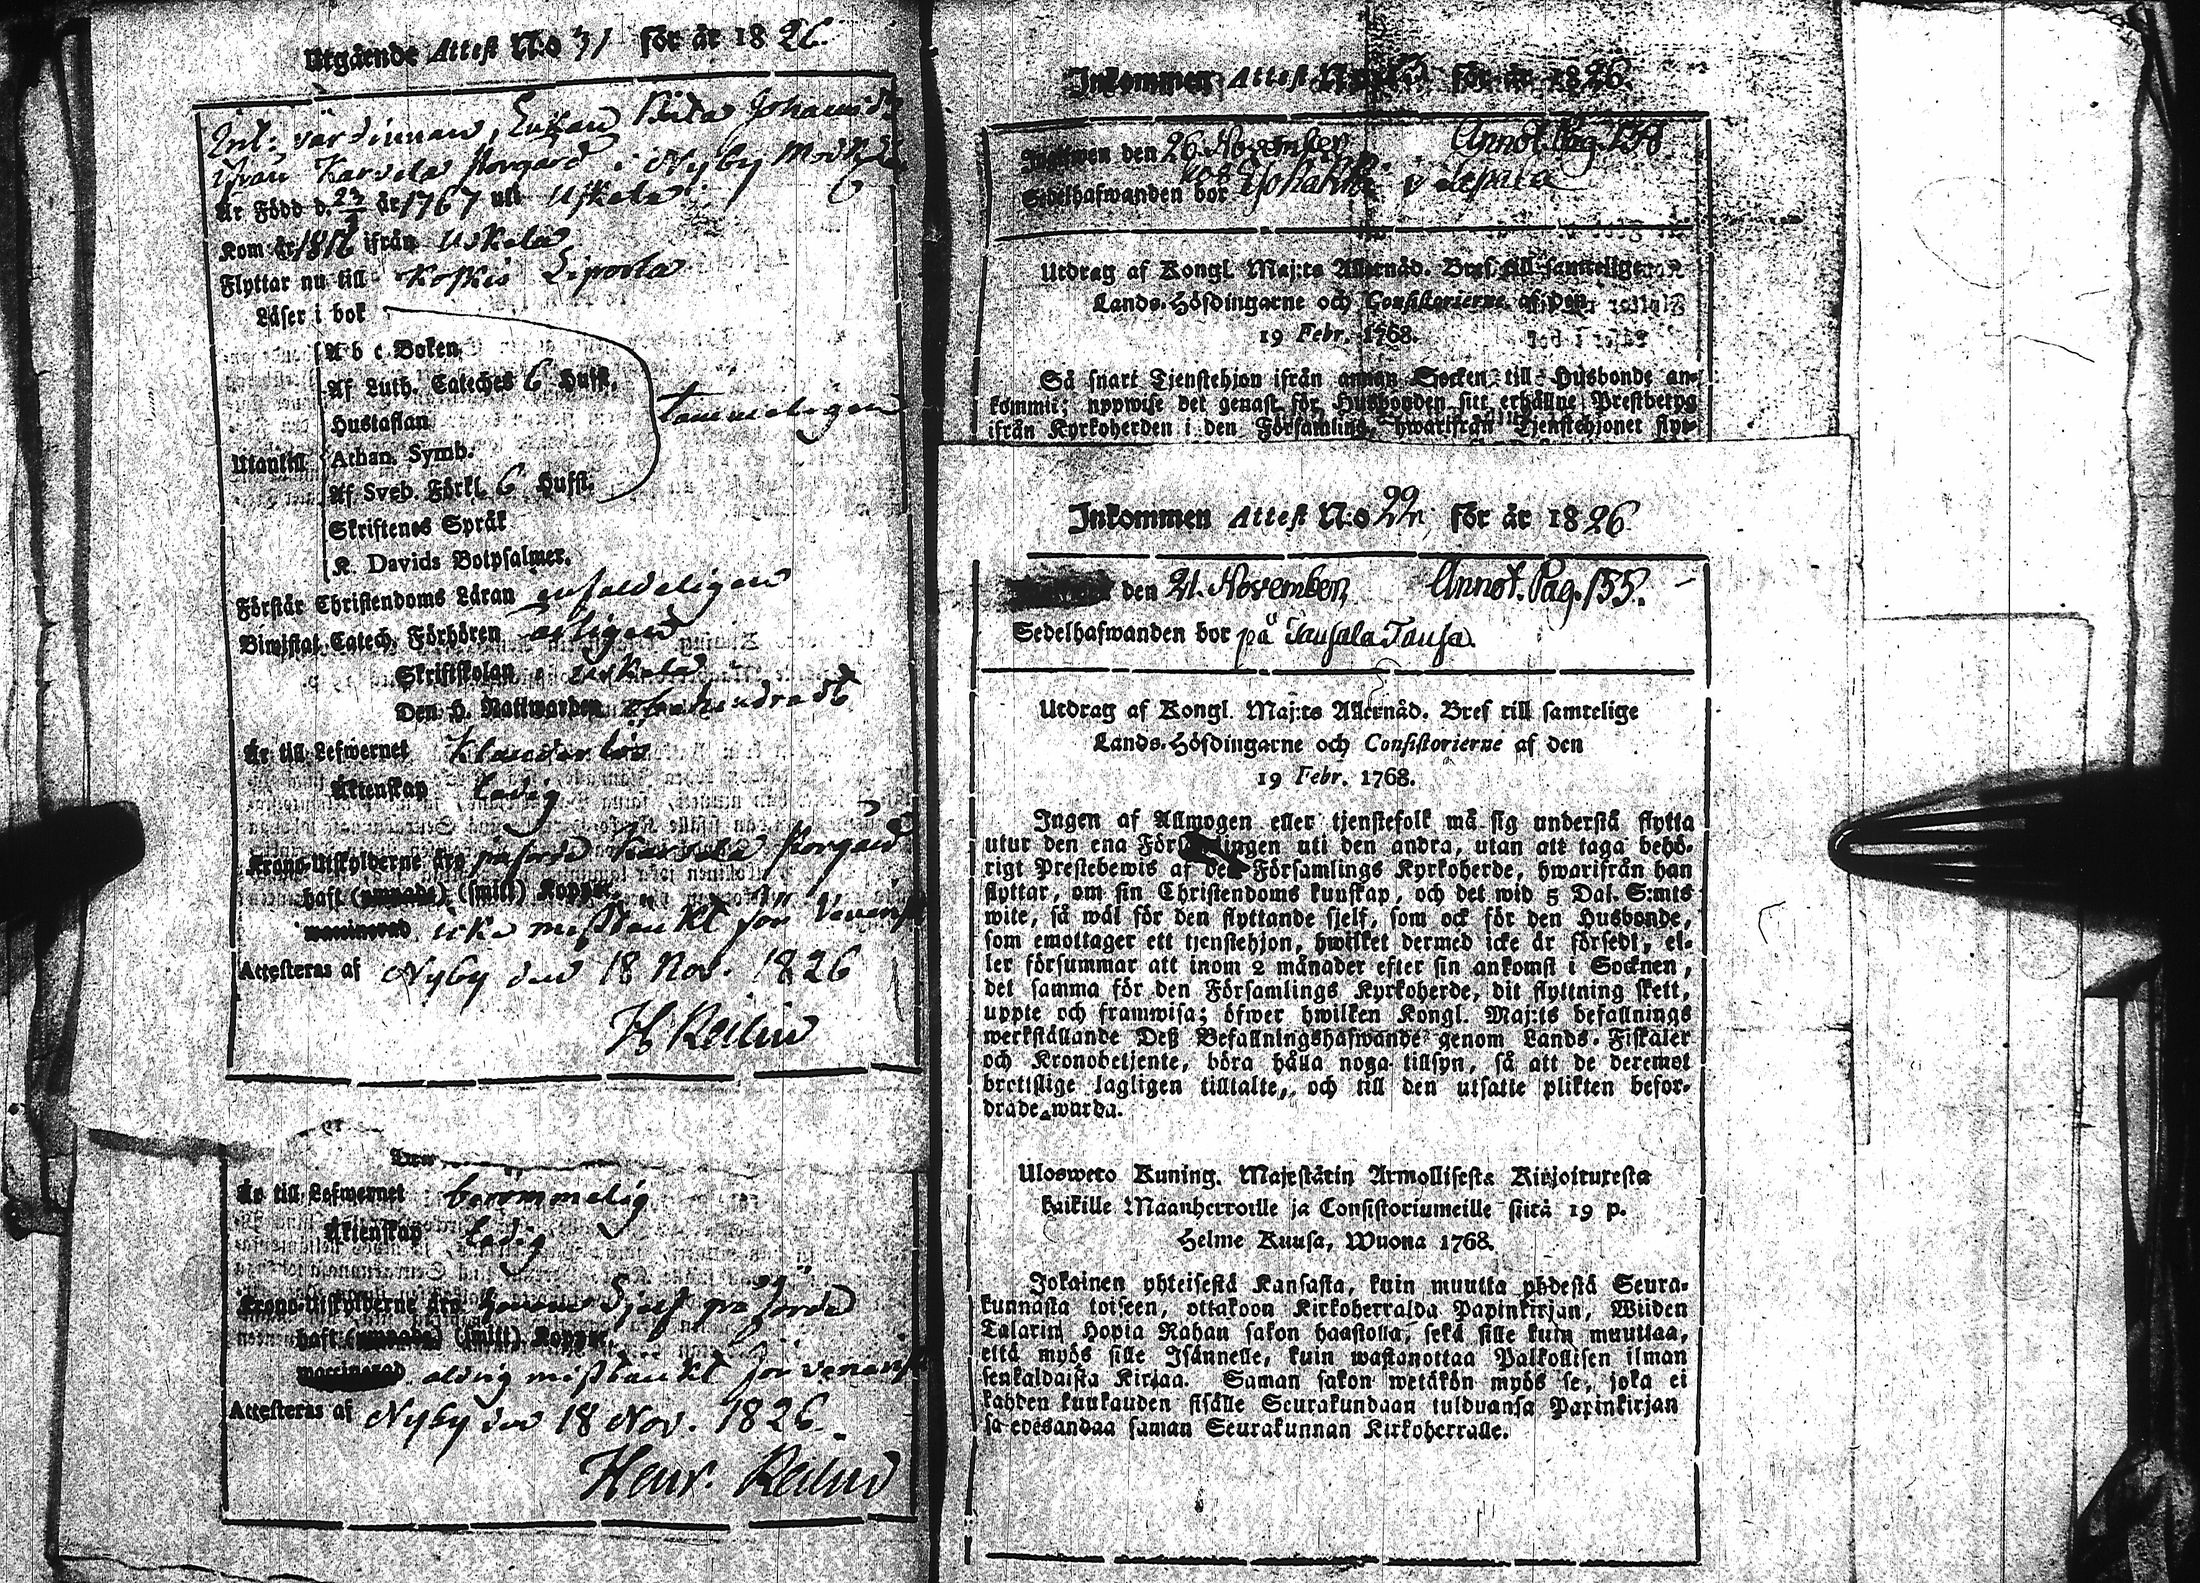 Utgående Attest N:o 31 för år 1826.
Inh: värdinnan, Enkan Johansdr
ifrån Karvela Storgård i Nyby
Är Född d. 23 år 1767 uti Uskela
Kom år 1816 ifrån Uskela
Flyttar nu till Koskis Liporla
Läser i bok
A b c Boken
Af Luth. Cateches 6 Hufst.
Hustaflan
Utantill Athan. Symb.
Af Sveb. Förkl. 6 Hufst.
Skriftenes Språk
K. Davids Botpsalmer.
Temmeligen
Förstår Christendoms Läran enfaldeligen
Biwistat Catech. Förhören årligen
Skriftskolan i Uskela
Den H. Nattwarden obehindradt
Är till Lefwernet Klanderlös
Äktenskap ledig
Krono-Utskylderne äro påförde Karvela Storgård
haft (smitt) Koppor
icke misstänkt för Venerisk
Attesteras af Nyby den 18 Nov. 1826
H Relin
Är till Lefwernet berömmelig
Äktenskap ledig
Krono-Utskylderne äro honom Sjelf påförde
haft (smitt) Koppor
aldrig misstänkt för venerisk
Attesteras af Nyby den 18 Nov. 1826.
Henr. Relin
Inkommen Attest N:o för år 1826.
den 26 November Annot. Pag. 158
Sedelhafwanden bor hos
Utdrag af Kongl. Maj:ts Allernåd. Bref till samtelige
Lands-Höfdingarne och Consistorierne af den
19 Febr. 1768.
Så snart Tjenstehjon ifrån annan Socken till Husbonde an-
kommit; uppwise det genast för Husbonden sitt erhållne Prestbetyg
ifrån Kyrkoherden i den Församling, hwarifrån Tjenstehjonet flyt-
Inkommen Attest N:o 22 för år 1826.
den 21. November Annot. Pag. 155.
Sedelhafwanden bor på Tausala Tausa.
Utdrag af Kongl. Maj:ts Allernåd. Bref till samtelige
Lands-Höfdingarne och Consistorierne af den
19 Febr. 1768.
Ingen af Allmogen eller tjenstefolk må sig understå flytta
utur den ena Församlingen uti den andra, utan att taga behö-
rigt Prestebewis af den Församlings Kyrkoherde, hwarifrån han
flyttar, om sin Christendoms kunskap, och det wid 5 Dal. S:mts
wite, så wäl för den flyttande sjelf, som ock för den Husbonde,
som emottager ett tjenstehjon, hwilket dermed icke är försedt, el-
ler försummar att inom 2 månader efter sin ankomst i Socknen,
det samma för den Församlings Kyrkoherde, dit flyttning skett,
uppte och framwisa; öfwer hwilken Kongl. Maj:ts befallnings
werkställande Deß Befallningshafwande genom Lands-Fiskaler
och Kronobetjente, böra hålla noga tillsyn, så att de deremot
brottslige lagligen tilltalte, och till den utsatte plikten befor-
drade warda.
Ulosweto Kuning. Majestätin Armollisesta Kirjoituxesta
kaikille Maanherroille ja Consistoriumeille siitä 19 p.
Helme Kuusa, Wuona 1768.
Jokainen yhteisestä Kansasta, kuin muutta yhdestä Seura-
kunnasta toiseen, ottakoon Kirkoherralda Papinkirjan, Wiiden
Talarin Hopia Rahan sakon haastolla, sekä sille kuin muuttaa,
että myös sille Isännelle, kuin wastanottaa Palkollisen ilman
senkaldaista Kirjaa. Saman sakon wetäkön myös se, joka ei
kahden kuukauden sisälle Seurakundaan tulduansa Papinkirjan-
sa edesandaa saman Seurakunnan Kirkoherralle.